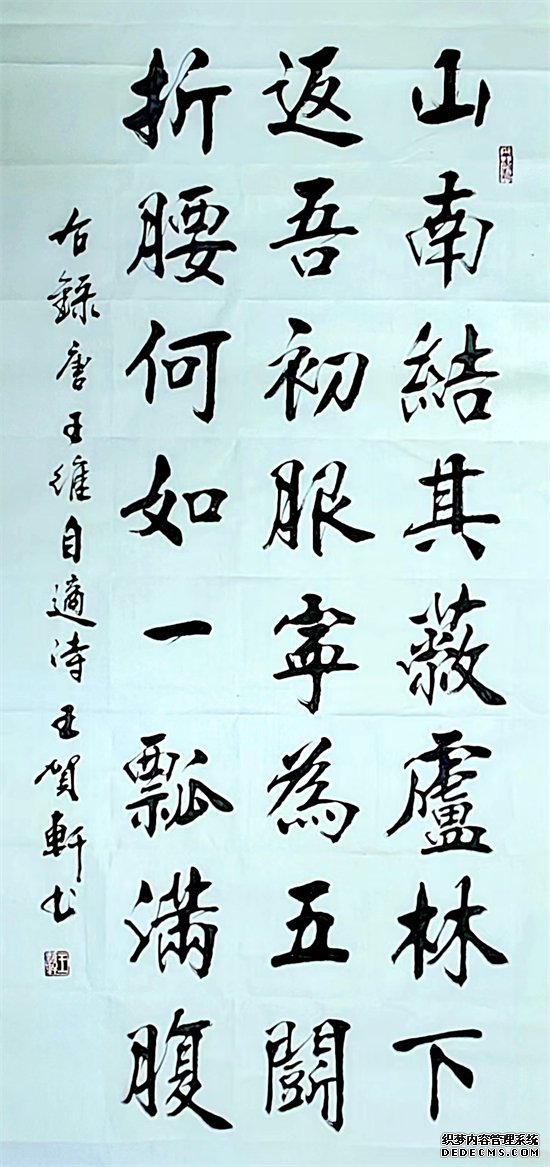 山南結其蔽盧林下
返吾初服寧為五鬪
折腰何如一瓢满腹
右錄唐王维自適诗王賀軒书
织梦内容管理系统
DEDECMS.COM